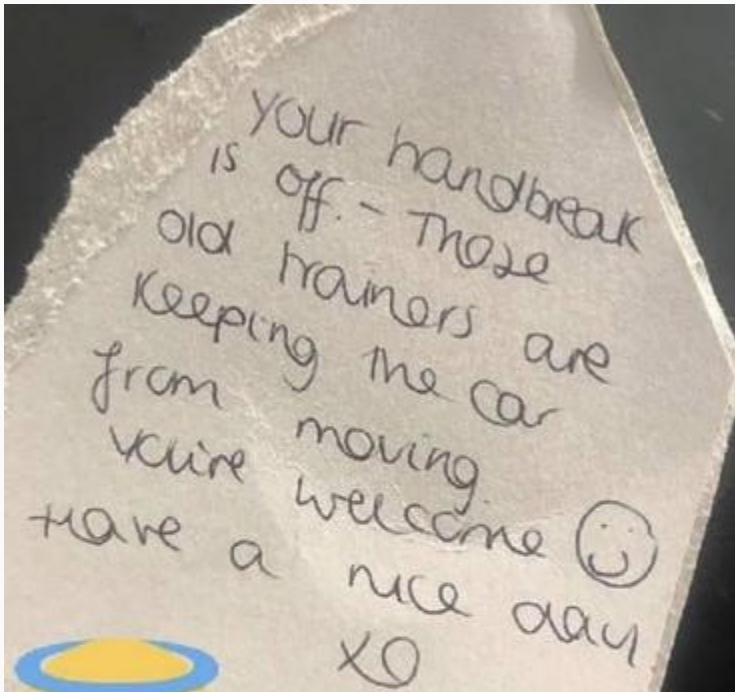 your handbreak
is off. - Those
old trainers are
keeping the car
from moving.
you're welcome
Have a nice day
xo